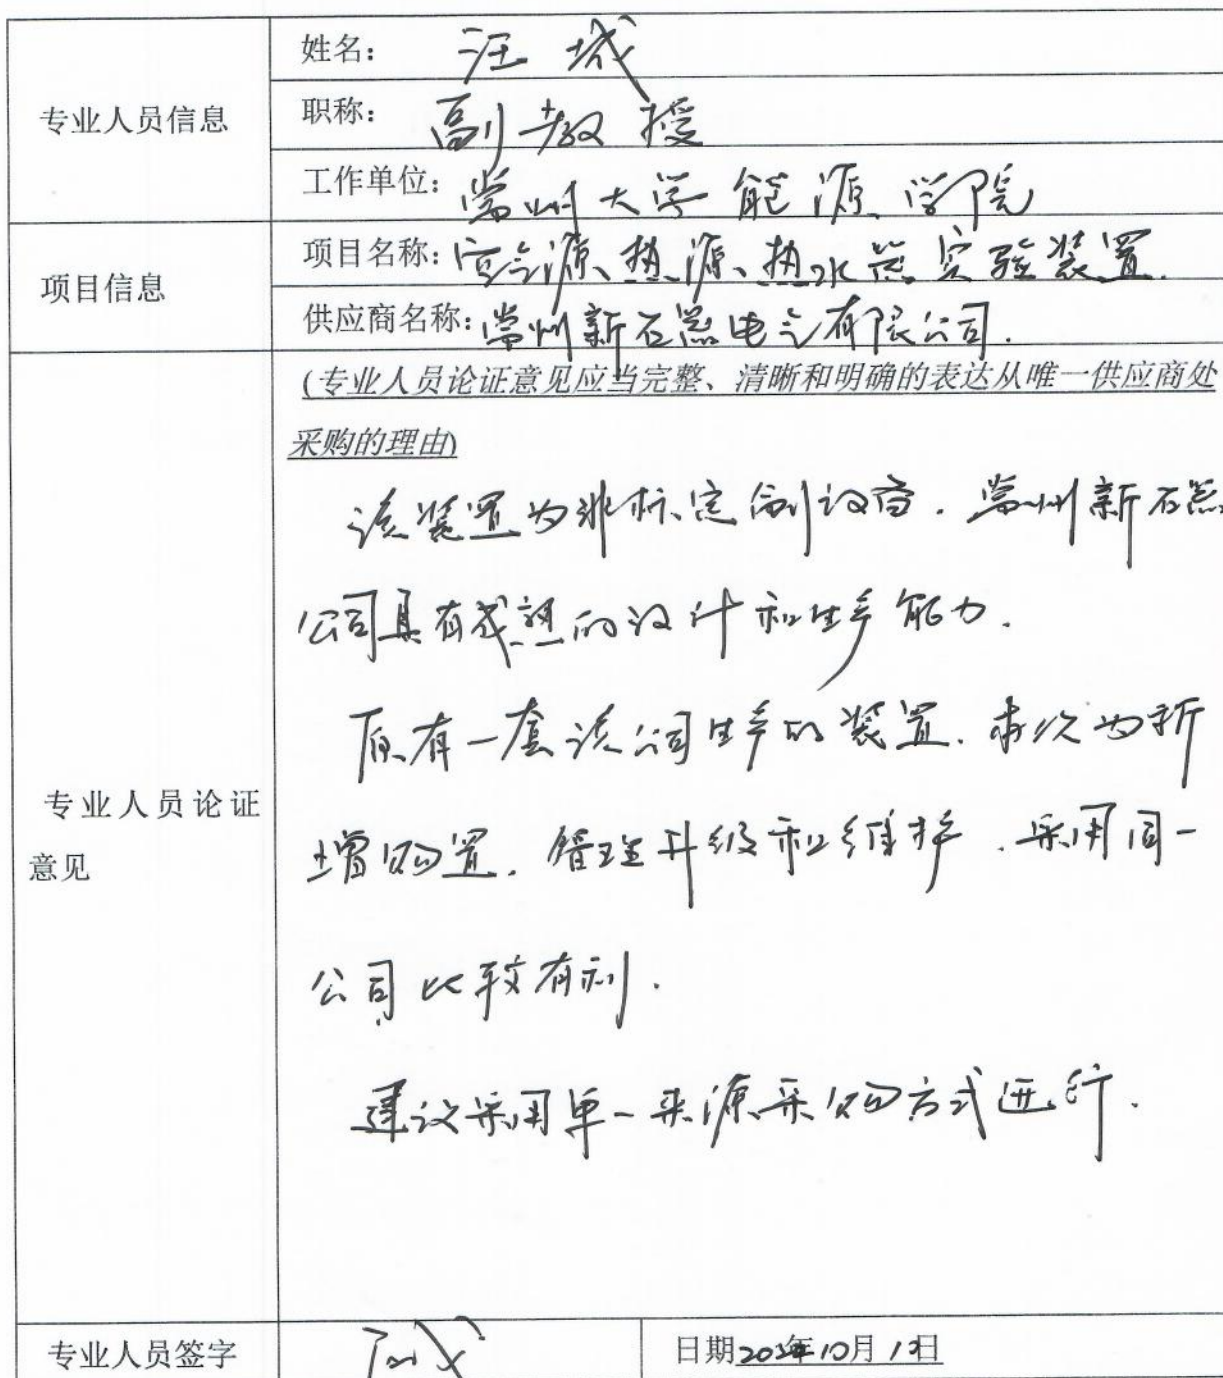 姓名: 汪城
职称: 副教授
专业人员信息
工作单位: 常州大学能源学院
项目名称: 空气源热源热水器实验装置
项目信息
供应商名称: 常州新石器电气有限公司.
(专业人员论证意见应当完整、清晰和明确的表达从唯一供应商处
采购的理由)
该装置为非标定制设备. 常州新石器
公司具有成熟的设计和生产能力.
原有一套该公司生产的装置. 本次为新
专业人员论证
增购置. 管理升级和维护. 采用同一
意见
公司比较有利.
建议采用单一来源采购方式进行.
专业人员签字 日期 年10月1 日